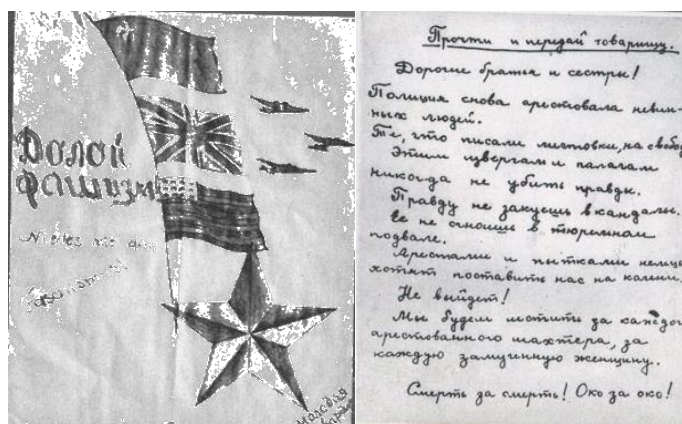 Долой
фашизм
Молодая
Прочти и передай товарищу.
Дорогие братья и сестры!
Полиция снова арестовала невин-
ных людей.
Те, что писали листовки, на свобо
Этим извергам и палачам
никогда не убить правды.
Правду не закуешь в кандалы.
Ее не сгноишь в тюремном
подвале.
Арестами и пытками немцы
хотят поставить нас на колени.
Не выйдет!
Мы будем мстить за каждого
арестованного шахтера, за
каждую замученную женщину.
Смерть за смерть! Око за око!